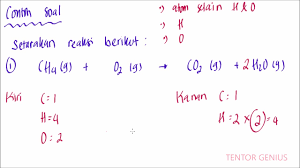 Contoh soal
→ atom selain H & O
→ H
→ O
Setarakan reaksi berikut :
① CH₄ (g) + O₂ (g) → CO₂ (g) + 2H₂O (g)
Kiri
Kanan
C = 1
C = 1
H = 4
H = 2 × ② = 4
O = 2
TENTOR GENIUS